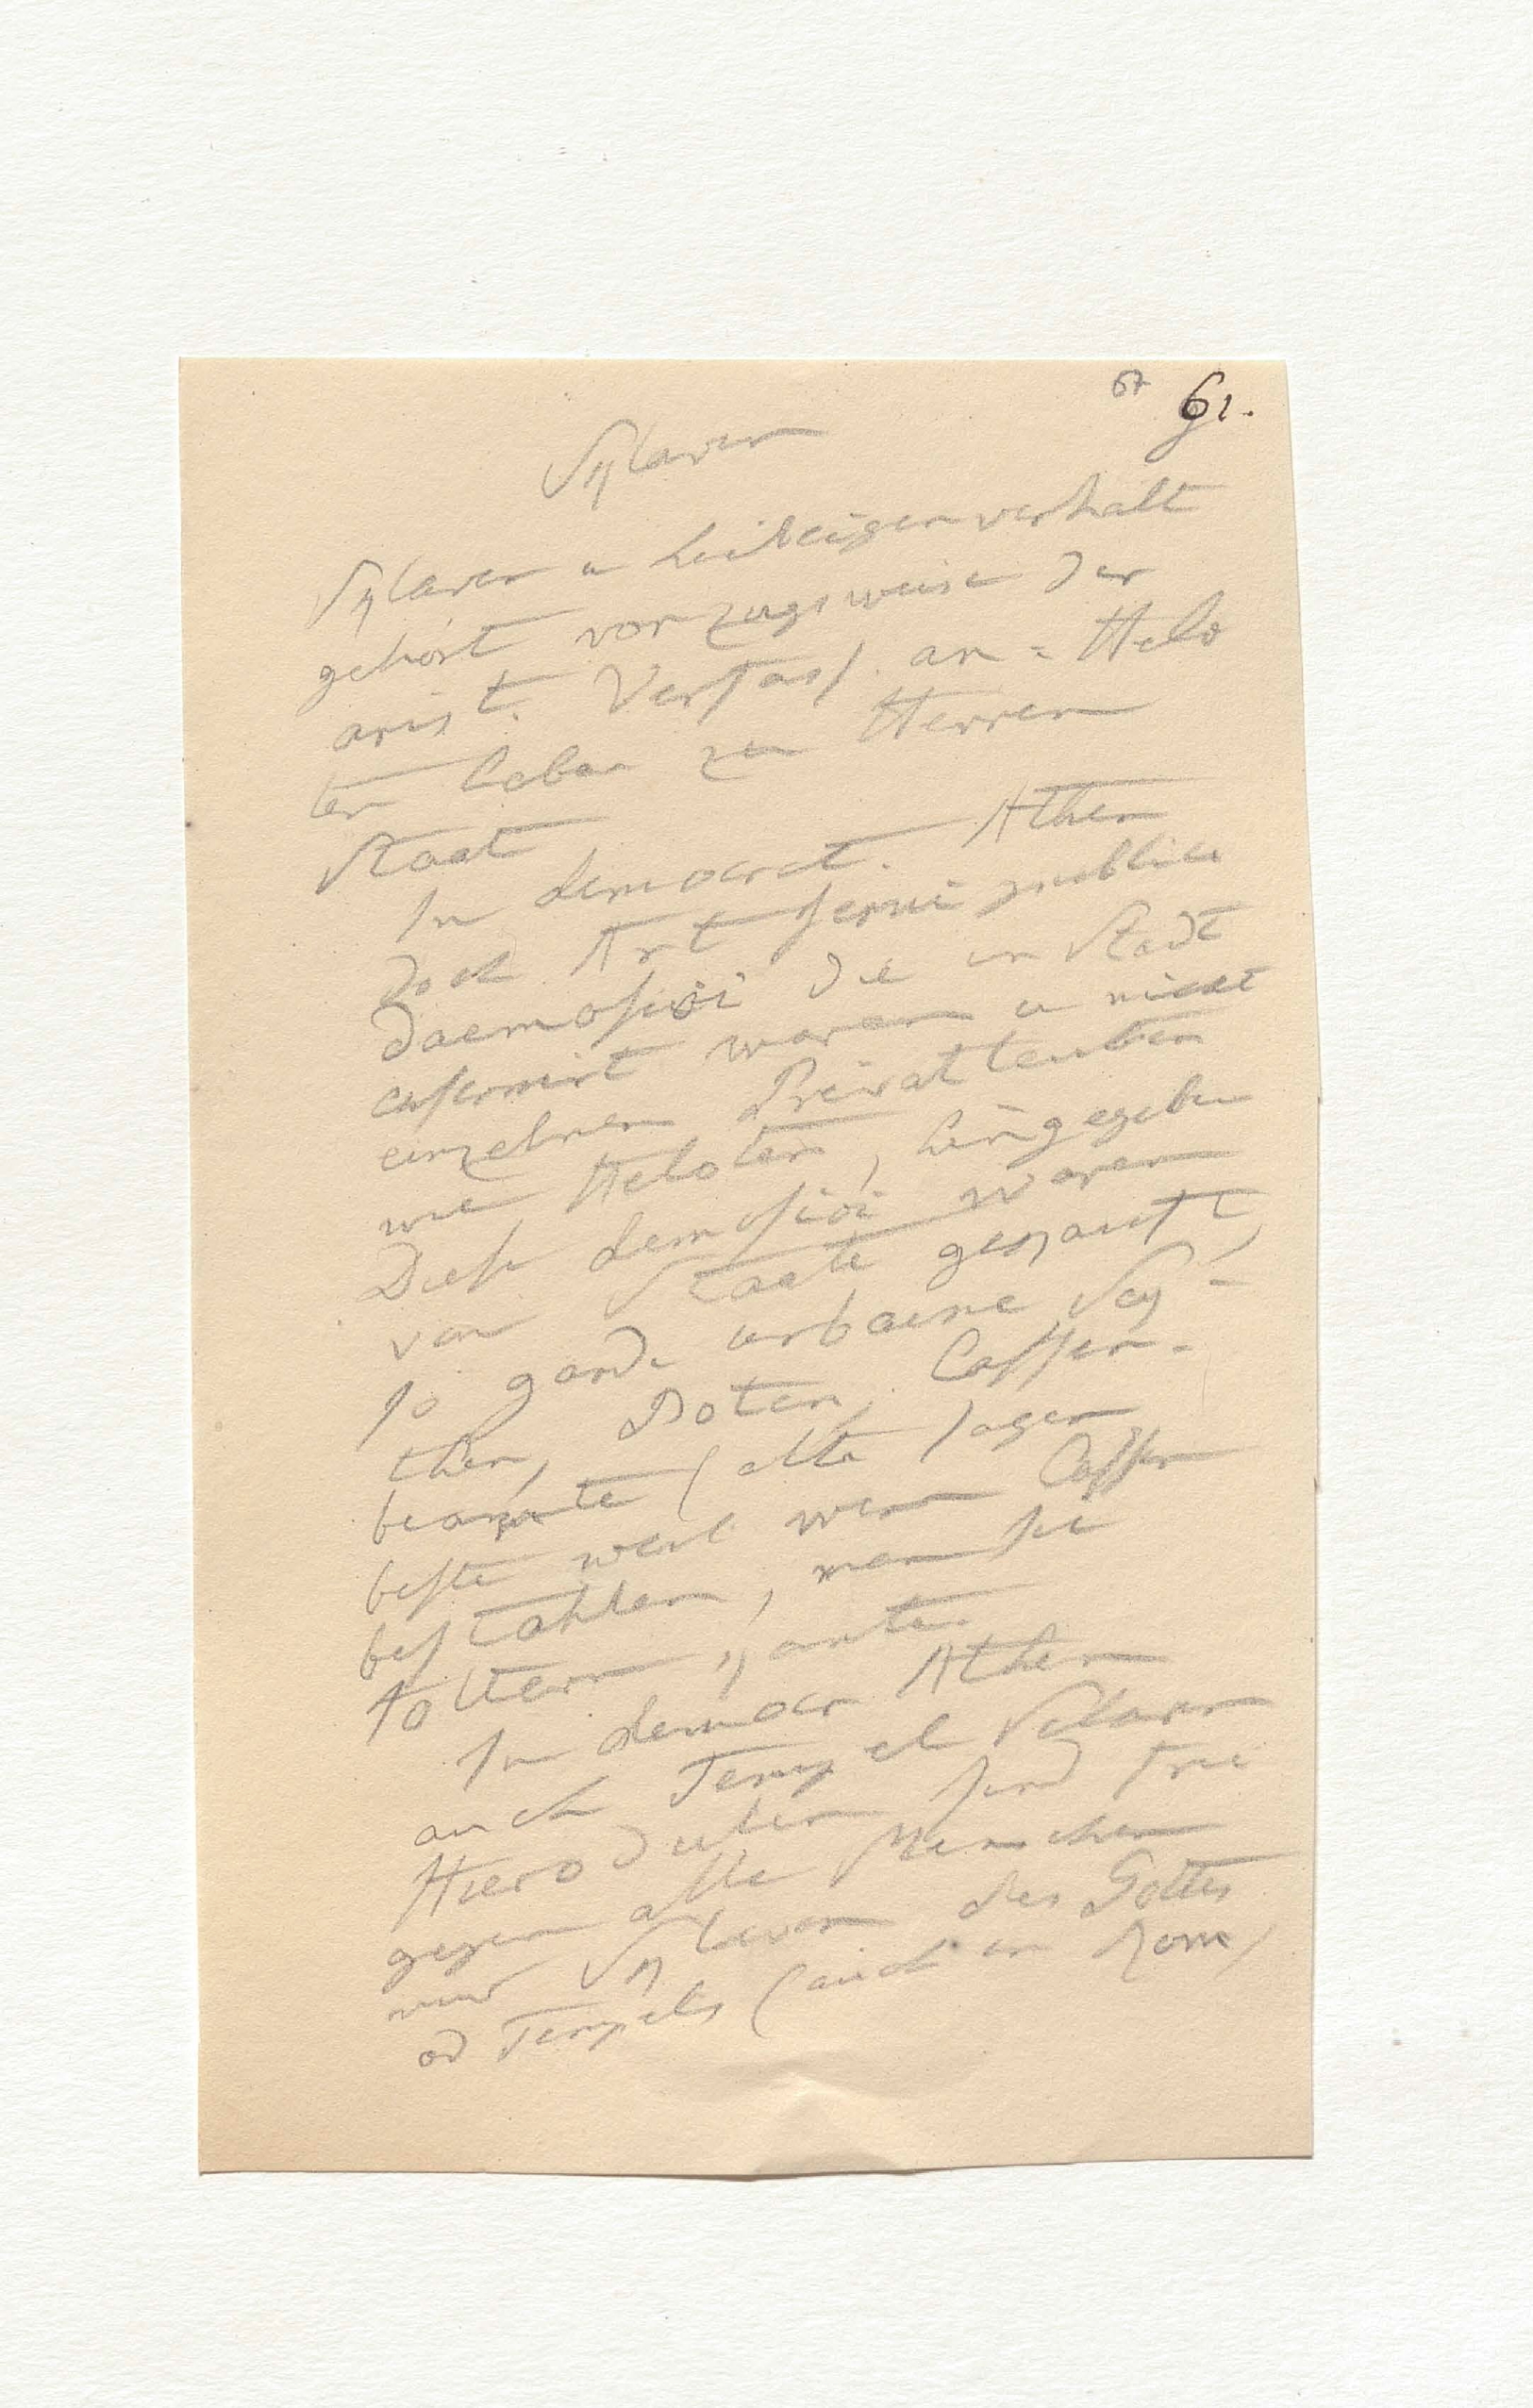 67 61.
Sklaven
Sklaven u Leibeigenverhält
gehört vorzugsweise der
arist. Verfass. an = Helo
ten haben zu Herren
Staat
In democrat. Athen
doch Art servi publici
daemosioi die in Stadt
casernirt waren u nicht
einzelnen Privatleuten
wie Heloten, hingegeben
Diese demosioi waren
von Staate gekauft,
so garde urbaine Scy-
then, Boten, Cassen-
beamte (alte sagen
beste weil wenn Cassen
bestahlen, man sie
foltern kante.
In democr Athen
auch Tempel Sclaven
Hierodulen sind frei
gegen alle Menschen
nur Sklaven des Gottes
od Tempels (auch in Rom)